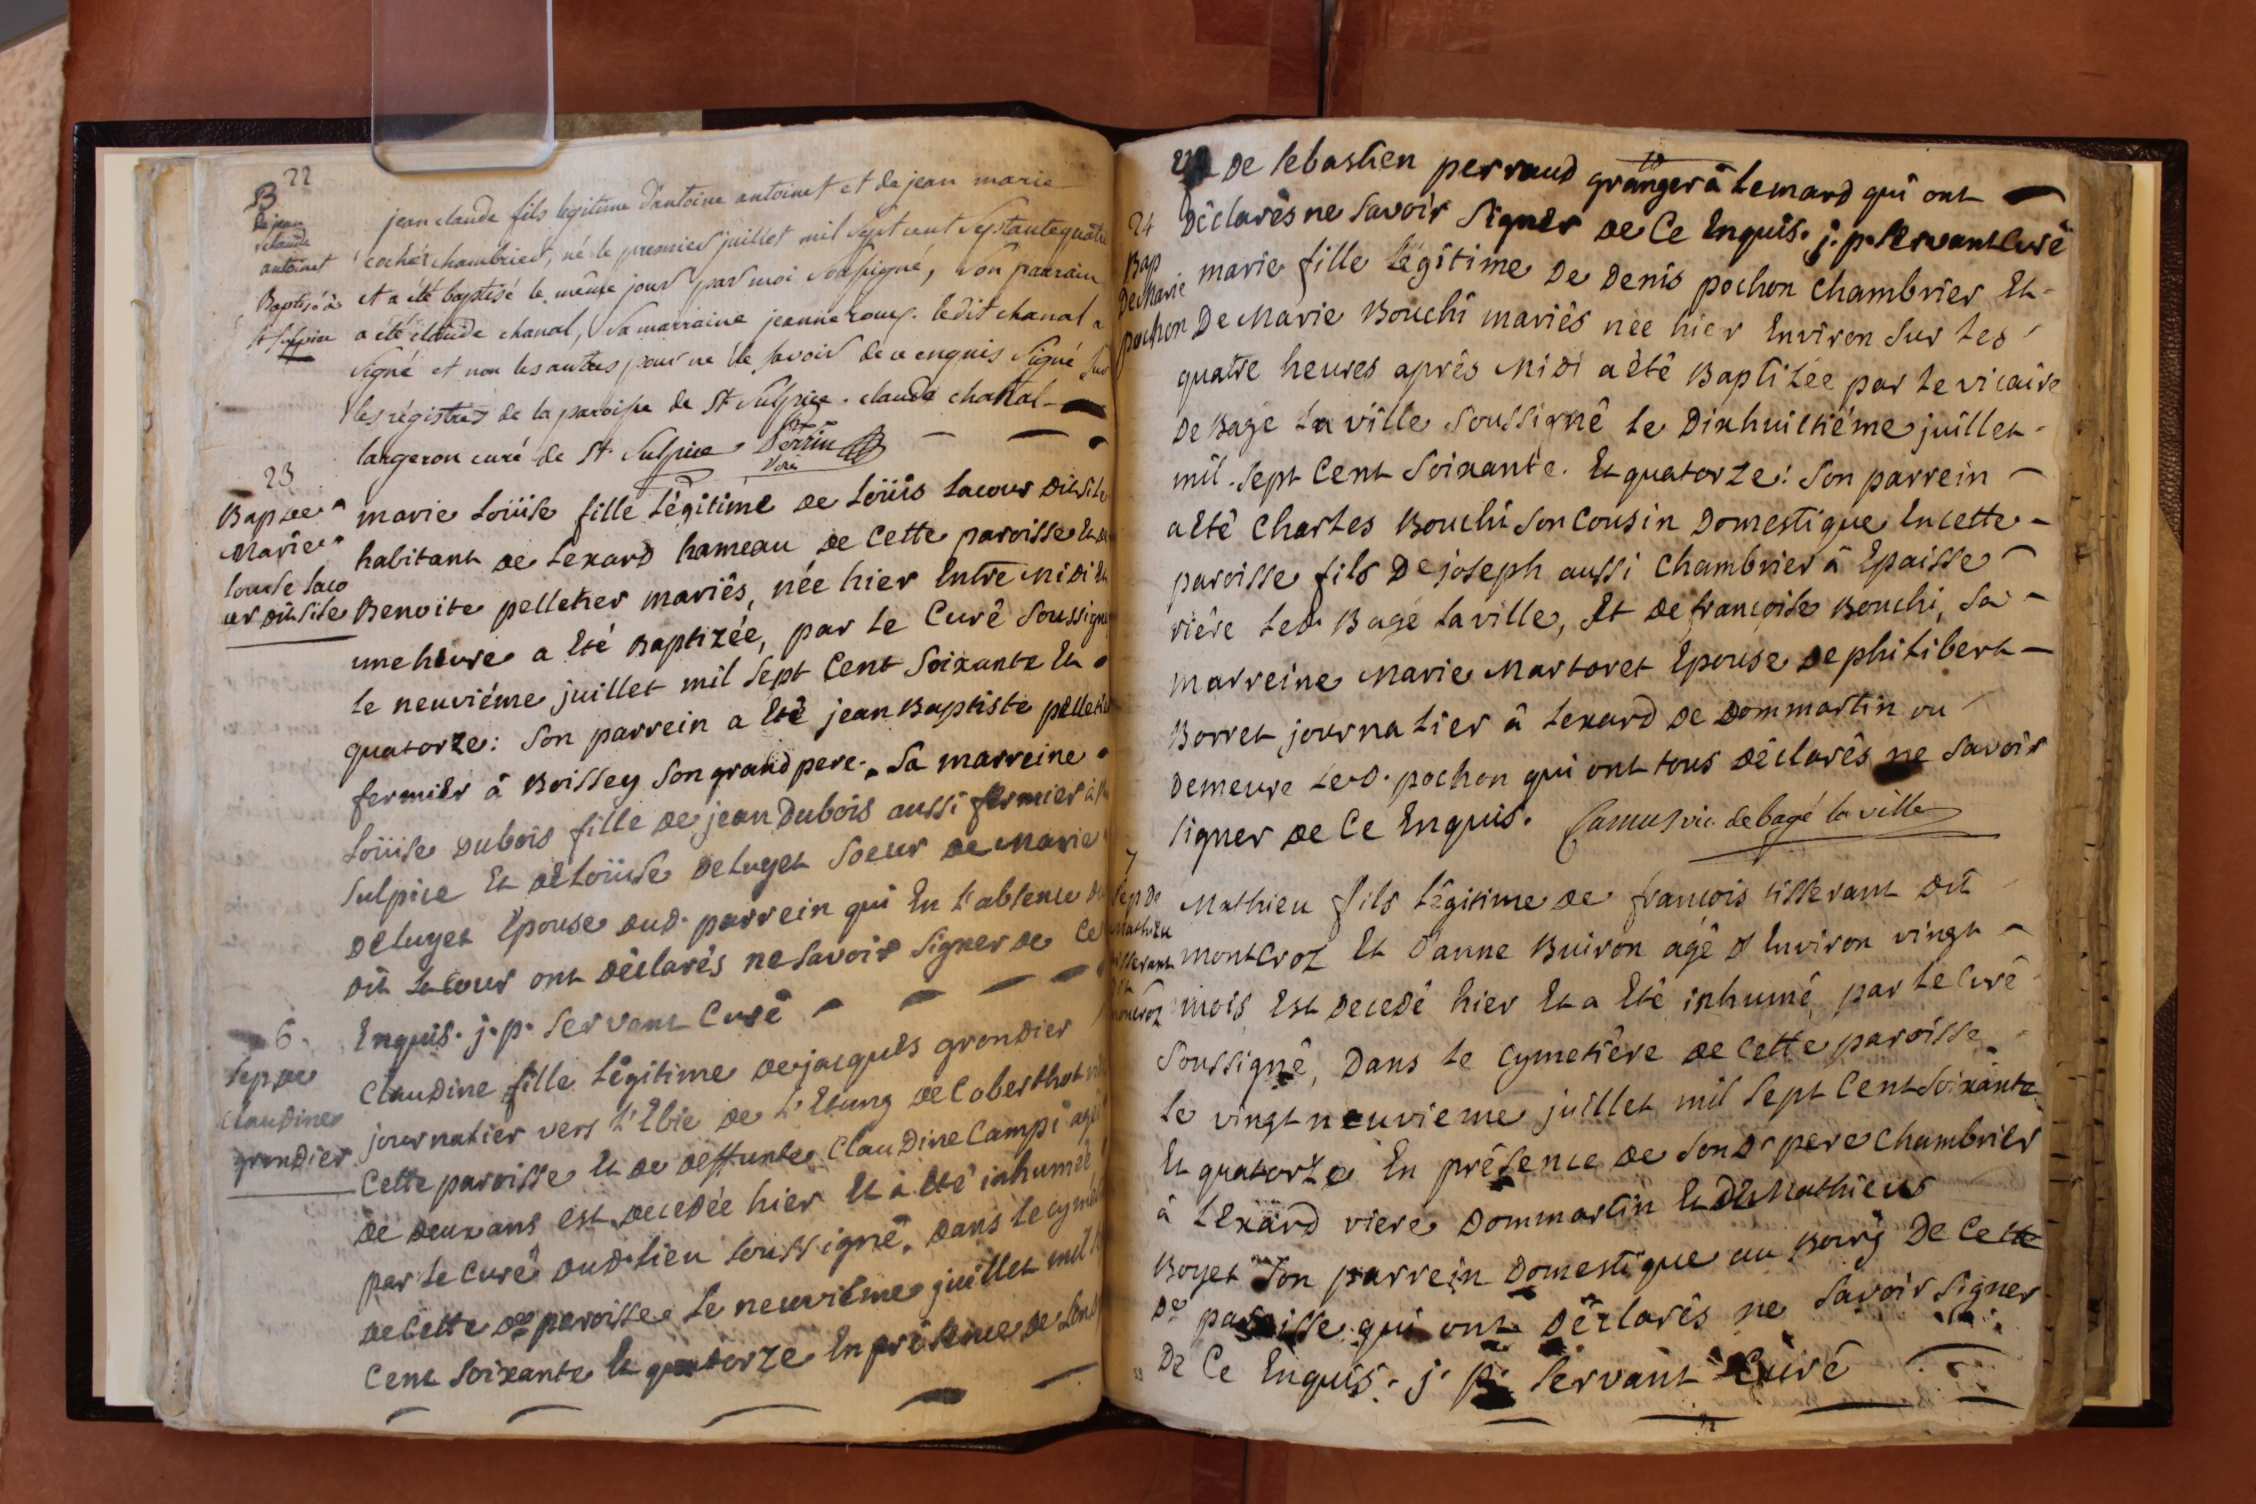 22
B
De jean
claude
antoinet
Baptisé à
St Sulpice
jean claude fils legitime d'antoine antoinet et de jean marie
cochet chambrier, né le premier juillet mil sept cent septante quatre
et a été baptisé le même jour par moi soussigné, son parrain
a été claude chanal, sa marraine jeanne roux. ledit chanal a
signé et non les autres pour ne le savoir de ce enquis signé sur
les régistres de la paroisse de St Sulpice. claude chanal
largeron curé de St Sulpice Perrin
23
Bap de
Marie
louise laco
ur dit sile
marie Loüise fille Légitime de Loüis Lacour dit sile
habitant de Lexard hameau de Cette paroisse Et de
Benoite pelletier mariês, née hier Entre midi Et
une heure a Eté Baptizée, par le Curê soussigné
le neuviéme juillet mil sept Cent soixante Et
quatorze: son parrein a Etê jean Baptiste pelletier
fermier â Boissey son grand pere. sa marreine
Loüise Dubois fille de jean Dubois aussi fermier à St
sulpice Et de Loüise deluget soeur de Marie
deluget Epouse dud. parrein qui En l'absence du
dit Lacour ont déclarés ne savoir signer de Ce
Enquis. j. p. servant Curê
6.
sep de
Claudine
grondier
Claudine fille Légitime de jacques grondier
journalier vers l'Ebie de l'Etang de Coberthot
Cette paroisse Et de deffunte Claudine Campi agée
de deux ans est decedée hier Et à Eté inhumée
par le Curê dud. lieu soussigné. dans le cyme
de Cette de paroisse le neuviême juillet mil s
Cent soixante Et quatorze En présence de son d
de sebastien perraud granger â Lemard qui ont
Déclarês ne savoir signer de Ce Enquis. j. p. servant Curê
24
Bap
De Marie
pochon
marie fille Légitime De Denis pochon Chambrier Et
De Marie Bouchi mariês née hier Environ sur les
quatre heures aprês Midi a étê Baptisée par le vicaire
De Bagé la ville soussigné le Dixhuittiéme juillet
mil. sept Cent soixante. Et quatorze: son parrein
a Eté Charles Bouchi son Cousin Domestique En cette
paroisse fils De joseph aussi Chambrier â Epaisse
riêre led. Bagé la ville, Et de françoise Bouchi, sa
marreine Marie Martoret Epouse de philibert
Borret journalier â Lexard de Dommartin ou
Demeure led. pochon qui ont tous déclarês ne savoir
signer de Ce Enquis. Camus vic. de bagé la ville
7
sep De
Mathieu
tisserant
dit
montcroz
Mathieu fils Légitime de françois tisserant dit
montcroz Et d'anne Buiron agé d'Environ vingt
mois Est decedê hier Et a Etê inhumé, par le Curê
soussigné, Dans le Cymetiêre de Cette paroisse
le vingt neuvieme juillet mil sept Cent soixante
Et quatorze En présence de son d. pere Chambrier
à Lexard viere Dommartin Et de Mathieu
Boyet son parrein Domestique au Bourg De Cette
De paroisse qui ont Déclarês ne savoir signer
De Ce Enquis. j. p. servant Curé